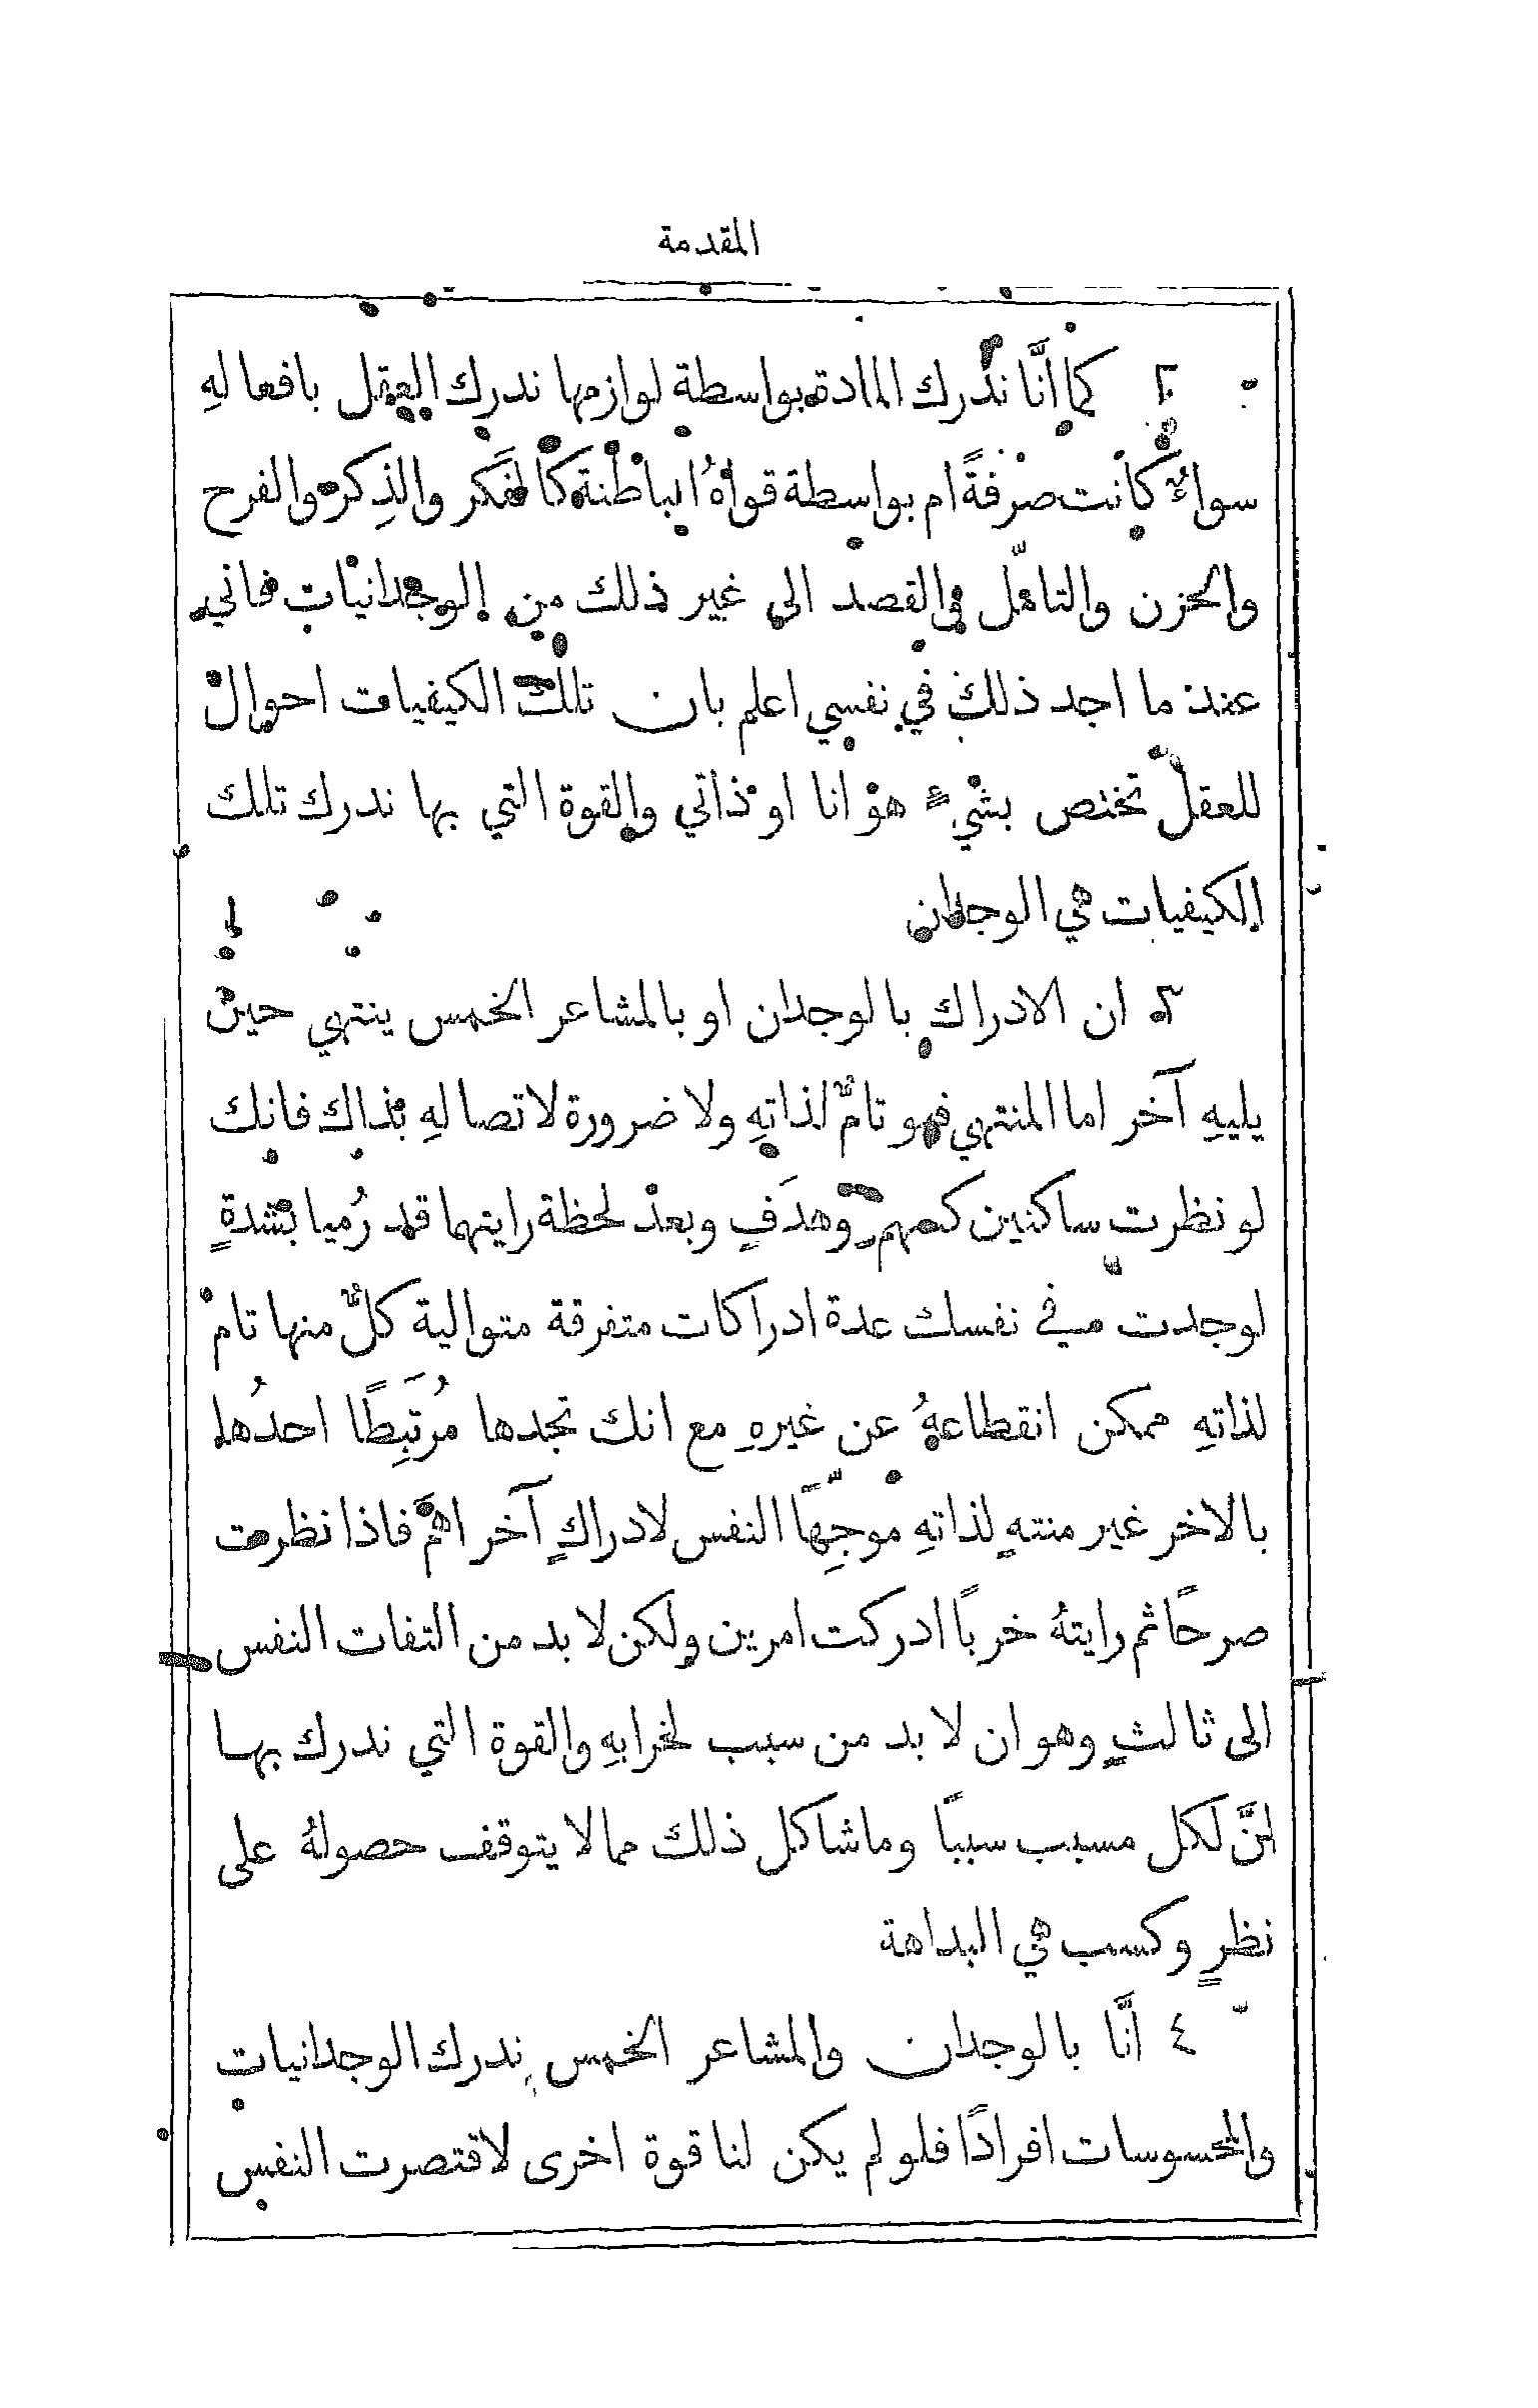 المقدمة
٢ كما انَّا ندرك المادة بواسطة لوازمها ندرك العقل بافعالهِ
سواءٌ كانت صرفةً ام بواسطة قواهُ الباطنة كالفكر والذِكر والفرح
والحزن والتامّل والقصد الى غير ذلك من الوجدانيات فاني
عند ما اجد ذلك في نفسي اعلم بان تلك الكيفيات احوال
للعقل تختص بشيءٍ هو انا او ذاتي والقوة التي بها ندرك تلك
الكيفيات هي الوجدان
٣ ان الادراك بالوجدان او بالمشاعر الخمس ينتهي حين
يليهِ آخر اما المنتهي فهو تامٌّ لذاتهِ ولا ضرورة لاتصالهِ بذاك فانك
لو نظرت ساكنين كسهمٍ وهدَفٍ وبعد لحظة رايتهما قد رُميا بشدةٍ
لوجدت في نفسك عدة ادراكات متفرقة متوالية كلٌّ منها تام
لذاتهِ ممكن انقطاعهُ عن غيرهِ مع انك تجدها مُرتَبِطًا احدُها
بالاخر غير منتهٍ لذاتهِ موجِّهًا النفس لادراكٍ آخر اهمَّ فاذا نظرت
صرحًا ثم رايتهُ خربًا ادركت امرين ولكن لا بد من التفات النفس
الى ثالثٍ وهو ان لا بد من سبب لخرابهِ والقوة التي ندرك بها
انَّ لكل مسبب سببًا وما شاكل ذلك مما لا يتوقف حصولهُ على
نظرٍ وكسب هي البداهة
٤ انَّا بالوجدان والمشاعر الخمس ندرك الوجدانيات
والمحسوسات افرادًا فلو لم يكن لنا قوة اخرى لاقتصرت النفس